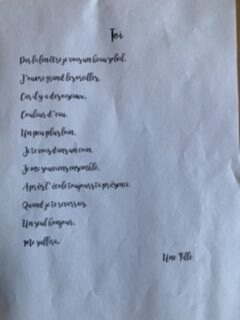 Toi
Par la fenêtre je vous un beau soleil,
J'ouvre grand les oreilles,
Car il y a des oiseaux,
Couleur d'eau.
Un peu plus loin,
Je te vois dans un coin,
Je me souviens ensemble,
Après l'école toujours ta présence,
Quand je te reverrais,
Un seul bonjour,
Me suffira.
Une Fille